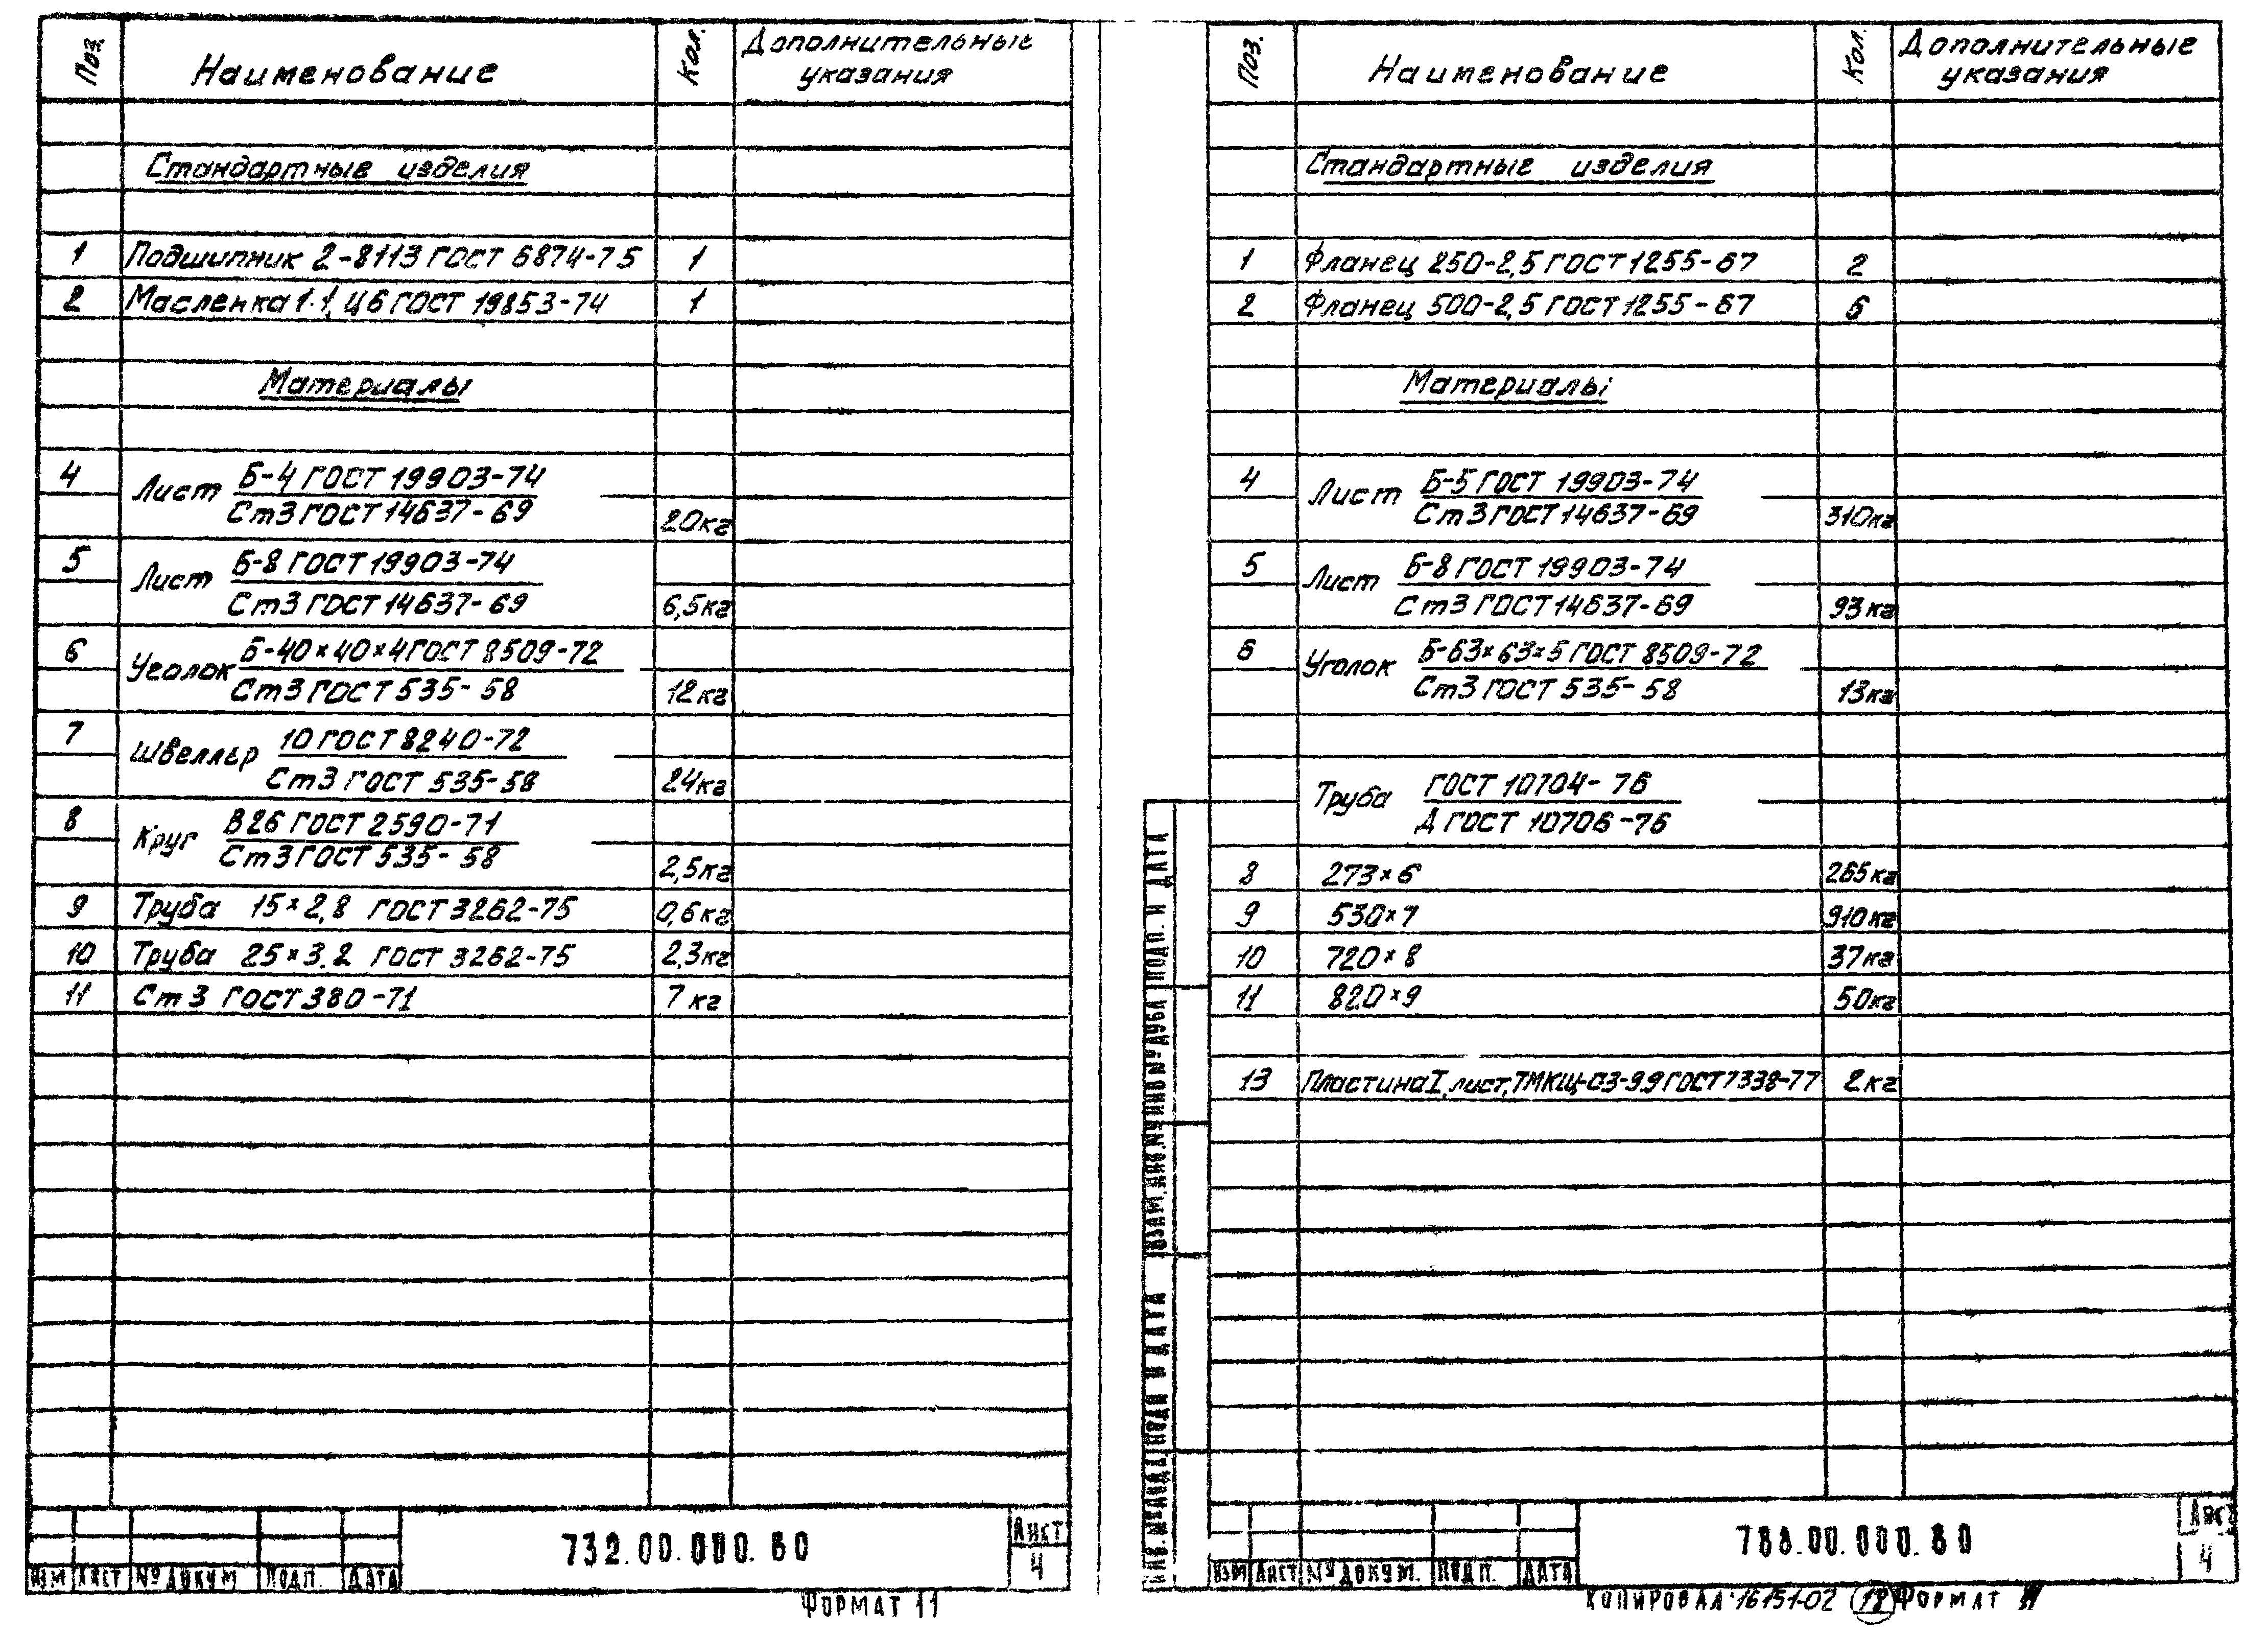 Поз. Наименование Кол. Дополнительные указания
Стандартные изделия
1 Подшипник 2-8113 ГОСТ 6874-75 1
2 Масленка 1.1. Ц6 ГОСТ 19853-74 1
Материалы
4 Лист Б-4 ГОСТ 19903-74
Ст3 ГОСТ 14637-69 20кг
5 Лист Б-8 ГОСТ 19903-74
Ст3 ГОСТ 14637-69 6,5кг
6 Уголок Б-40×40×4 ГОСТ 8509-72
Ст3 ГОСТ 535-58 12кг
7 Швеллер 10 ГОСТ 8240-72
Ст3 ГОСТ 535-58 24кг
8 Круг В26 ГОСТ 2590-71
Ст3 ГОСТ 535-58 2,5кг
9 Труба 15×2,8 ГОСТ 3262-75 0,6кг
10 Труба 25×3.2 ГОСТ 3262-75 2,3кг
11 Ст3 ГОСТ 380-71 7кг
732.00.000.
Лист
4
ИЗМ ЛИСТ № ДОКУМ ПОДП. ДАТА
ФОРМАТ 11
Поз. Наименование Кол. Дополнительные указания
Стандартные изделия
1 Фланец 250-2,5 ГОСТ 1255-67 2
2 Фланец 500-2,5 ГОСТ 1255-67 6
Материалы
4 Лист Б-5 ГОСТ 19903-74
Ст3 ГОСТ 14637-69 310кг
5 Лист Б-8 ГОСТ 19903-74
Ст3 ГОСТ 14637-69 93кг
6 Уголок Б-63×63×5 ГОСТ 8509-72
Ст3 ГОСТ 535-58 13кг
Труба ГОСТ 10704-76
Д ГОСТ 10706-76
8 273×6 265кг
9 530×7 910кг
10 720×8 37кг
11 820×9 50кг
13 Пластина I, лист, ТМКЩ-С3-9.9 ГОСТ 7338-77 2кг
ПОДП. И ДАТА
ИНВ № ДУБЛ
ВЗАМ. ИНВ. №
И ДАТА
Лист
4
ИЗМ ЛИСТ № ДОКУМ. ПОДП. ДАТА
КОПИРОВАЛ 16151-02 18 ФОРМАТ 11